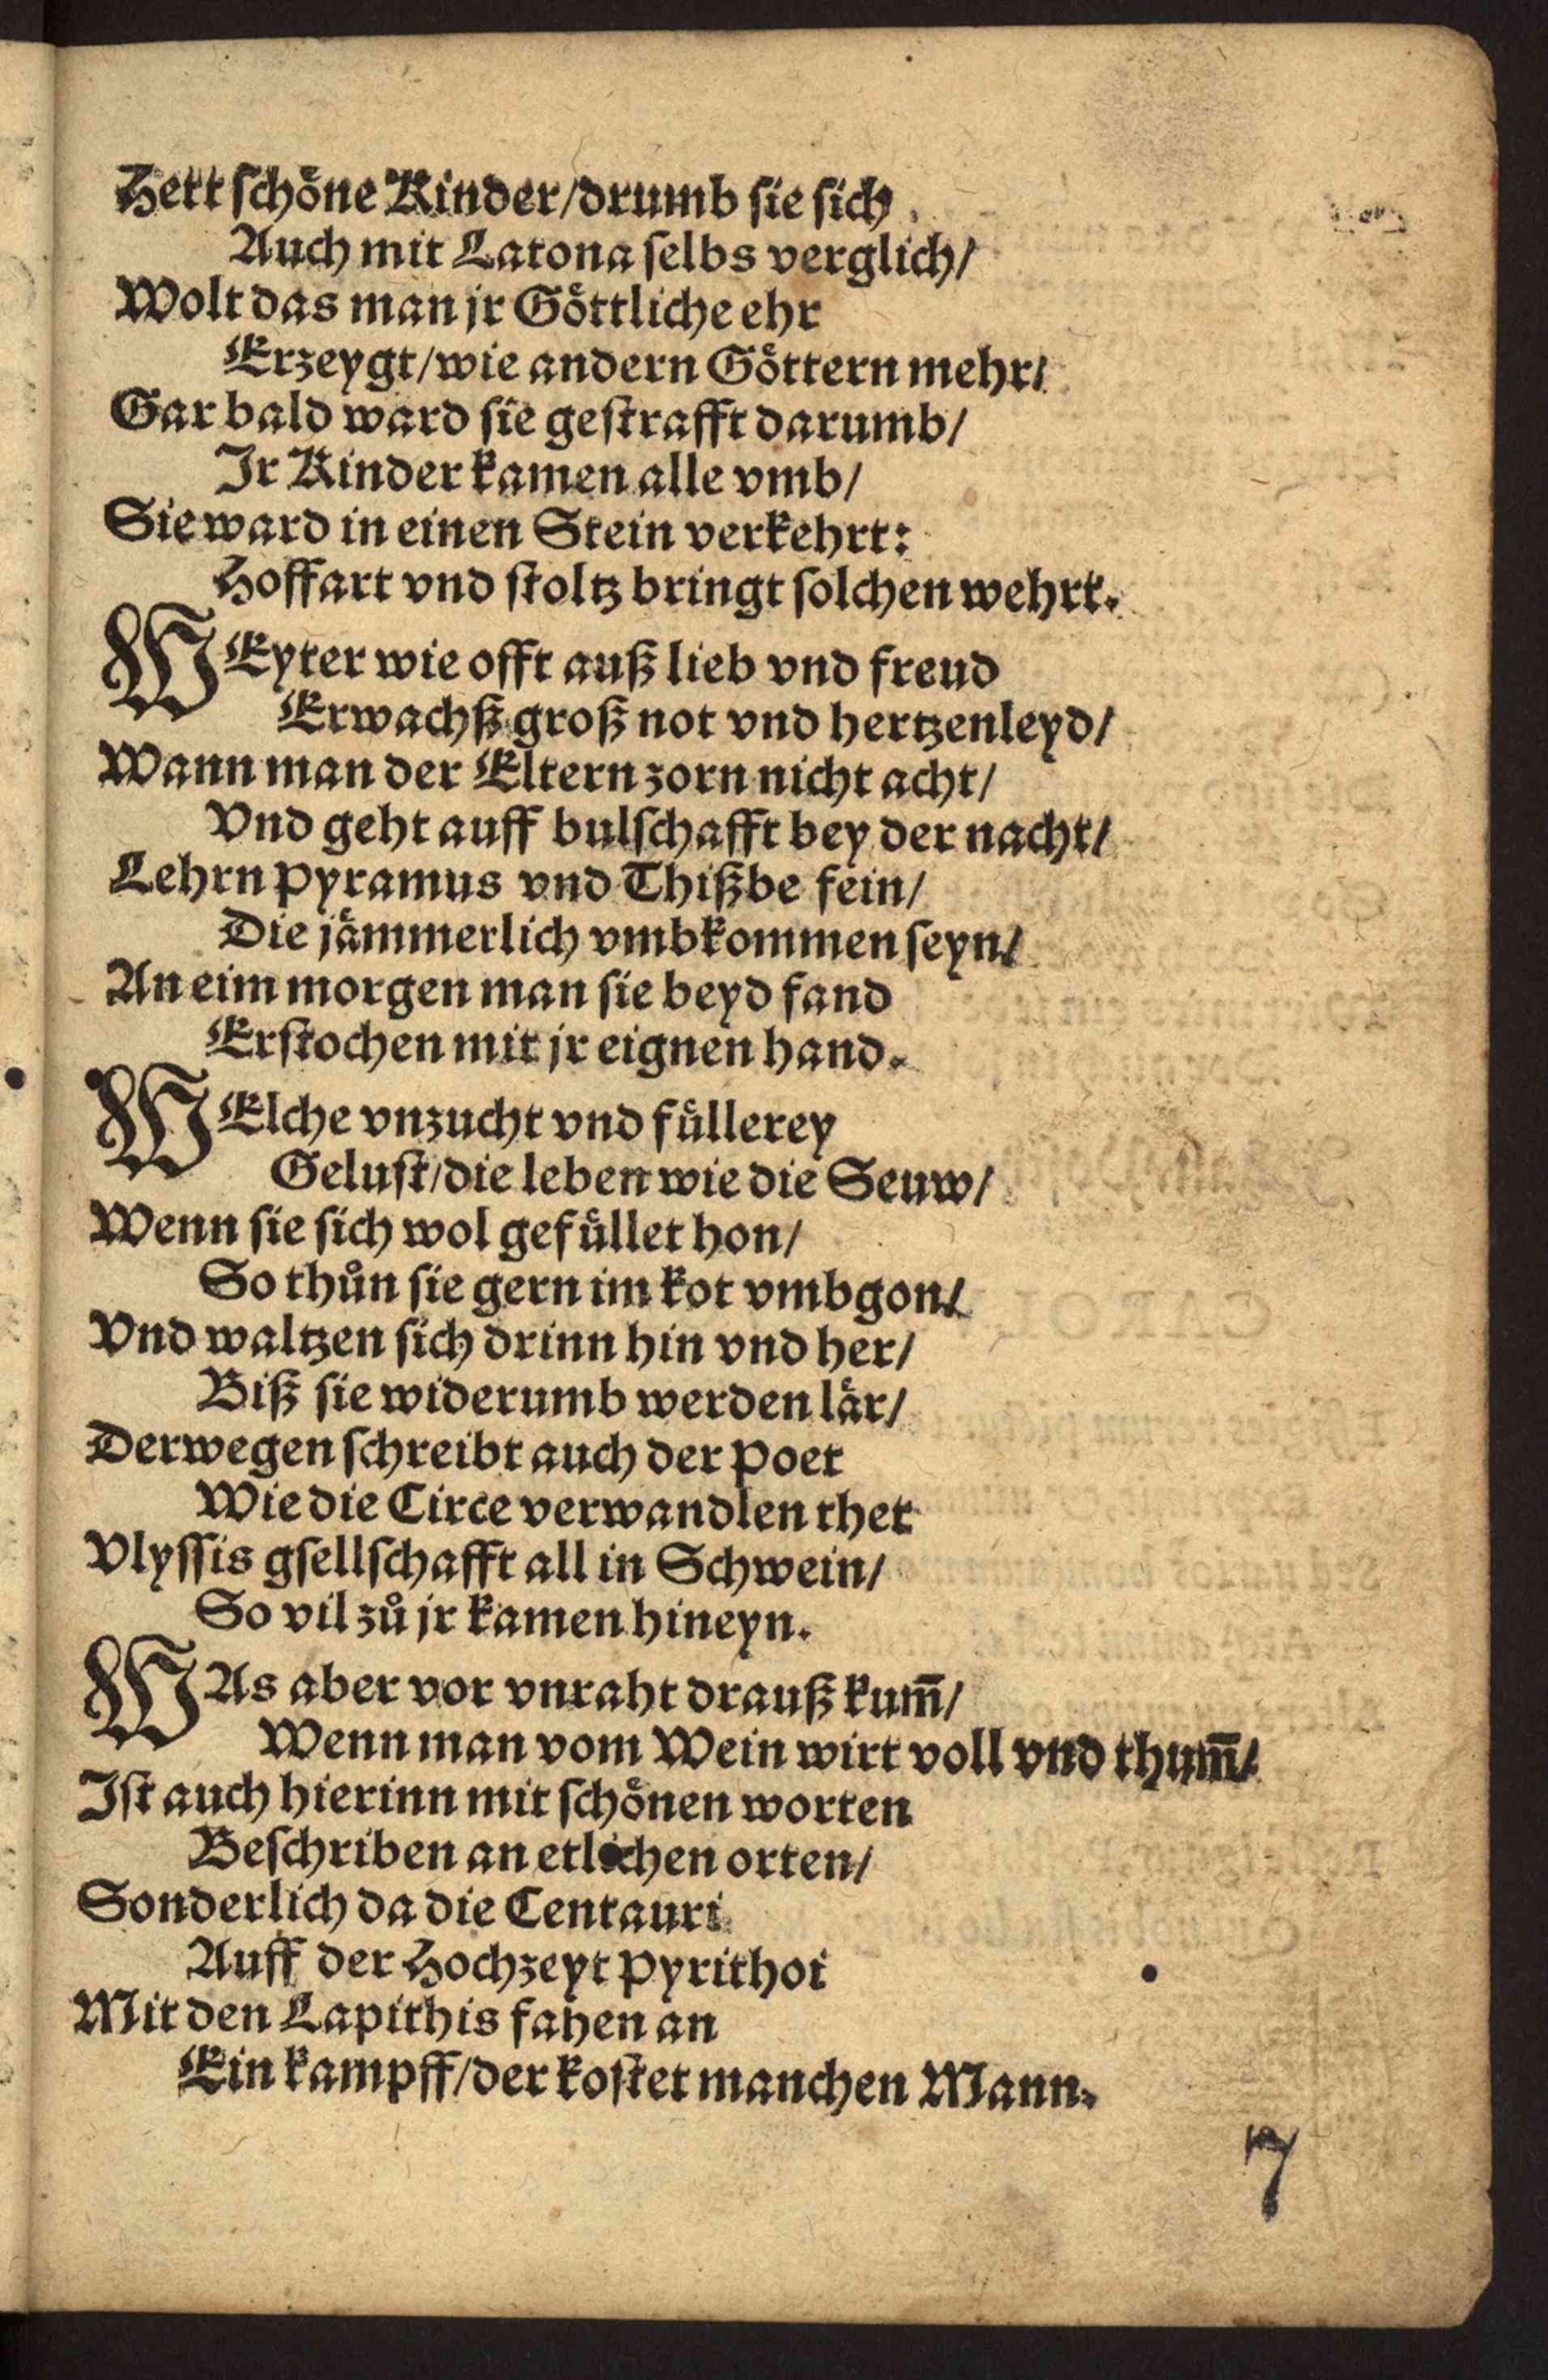 Hett schöne Kinder/drumb sie sich
Auch mit Latona selbs verglich/
Wolt das man jr Göttliche ehr
Erzeygt/wie andern Göttern mehr/
Gar bald ward sie gestrafft darumb/
Ir Kinder kamen alle vmb/
Sie ward in einen Stein verkehrt:
Hoffart vnd stoltz bringt solchen wehrt.
WEyter wie offt auß lieb vnd freud
Erwachß groß not vnd hertzenleyd/
Wann man der Eltern zorn nicht acht/
Vnd geht auff bulschafft bey der nacht/
Lehrn Pyramus vnd Thißbe fein/
Die jämmerlich vmbkommen seyn/
An eim morgen man sie beyd fand
Erstochen mit jr eignen hand.
WElche vnzucht vnd füllerey
Gelust/die leben wie die Seuw/
Wenn sie sich wol gefüllet hon/
So thůn sie gern im kot vmbgon/
Vnd waltzen sich drinn hin vnd her/
Biß sie widerumb werden lär/
Derwegen schreibt auch der Poet
Wie die Circe verwandlen thet
Vlyssis gsellschafft all in Schwein/
So vil zů jr kamen hineyn.
WAs aber vor vnraht drauß kum̃/
Wenn man vom Wein wirt voll vnd thum̃/
Ist auch hierinn mit schönen worten
Beschriben an etlichen orten/
Sonderlich da die Centauri
Auff der Hochzeyt Pyrithoi
Mit den Lapithis fahen an
Ein kampff/der kostet manchen Mann.
7